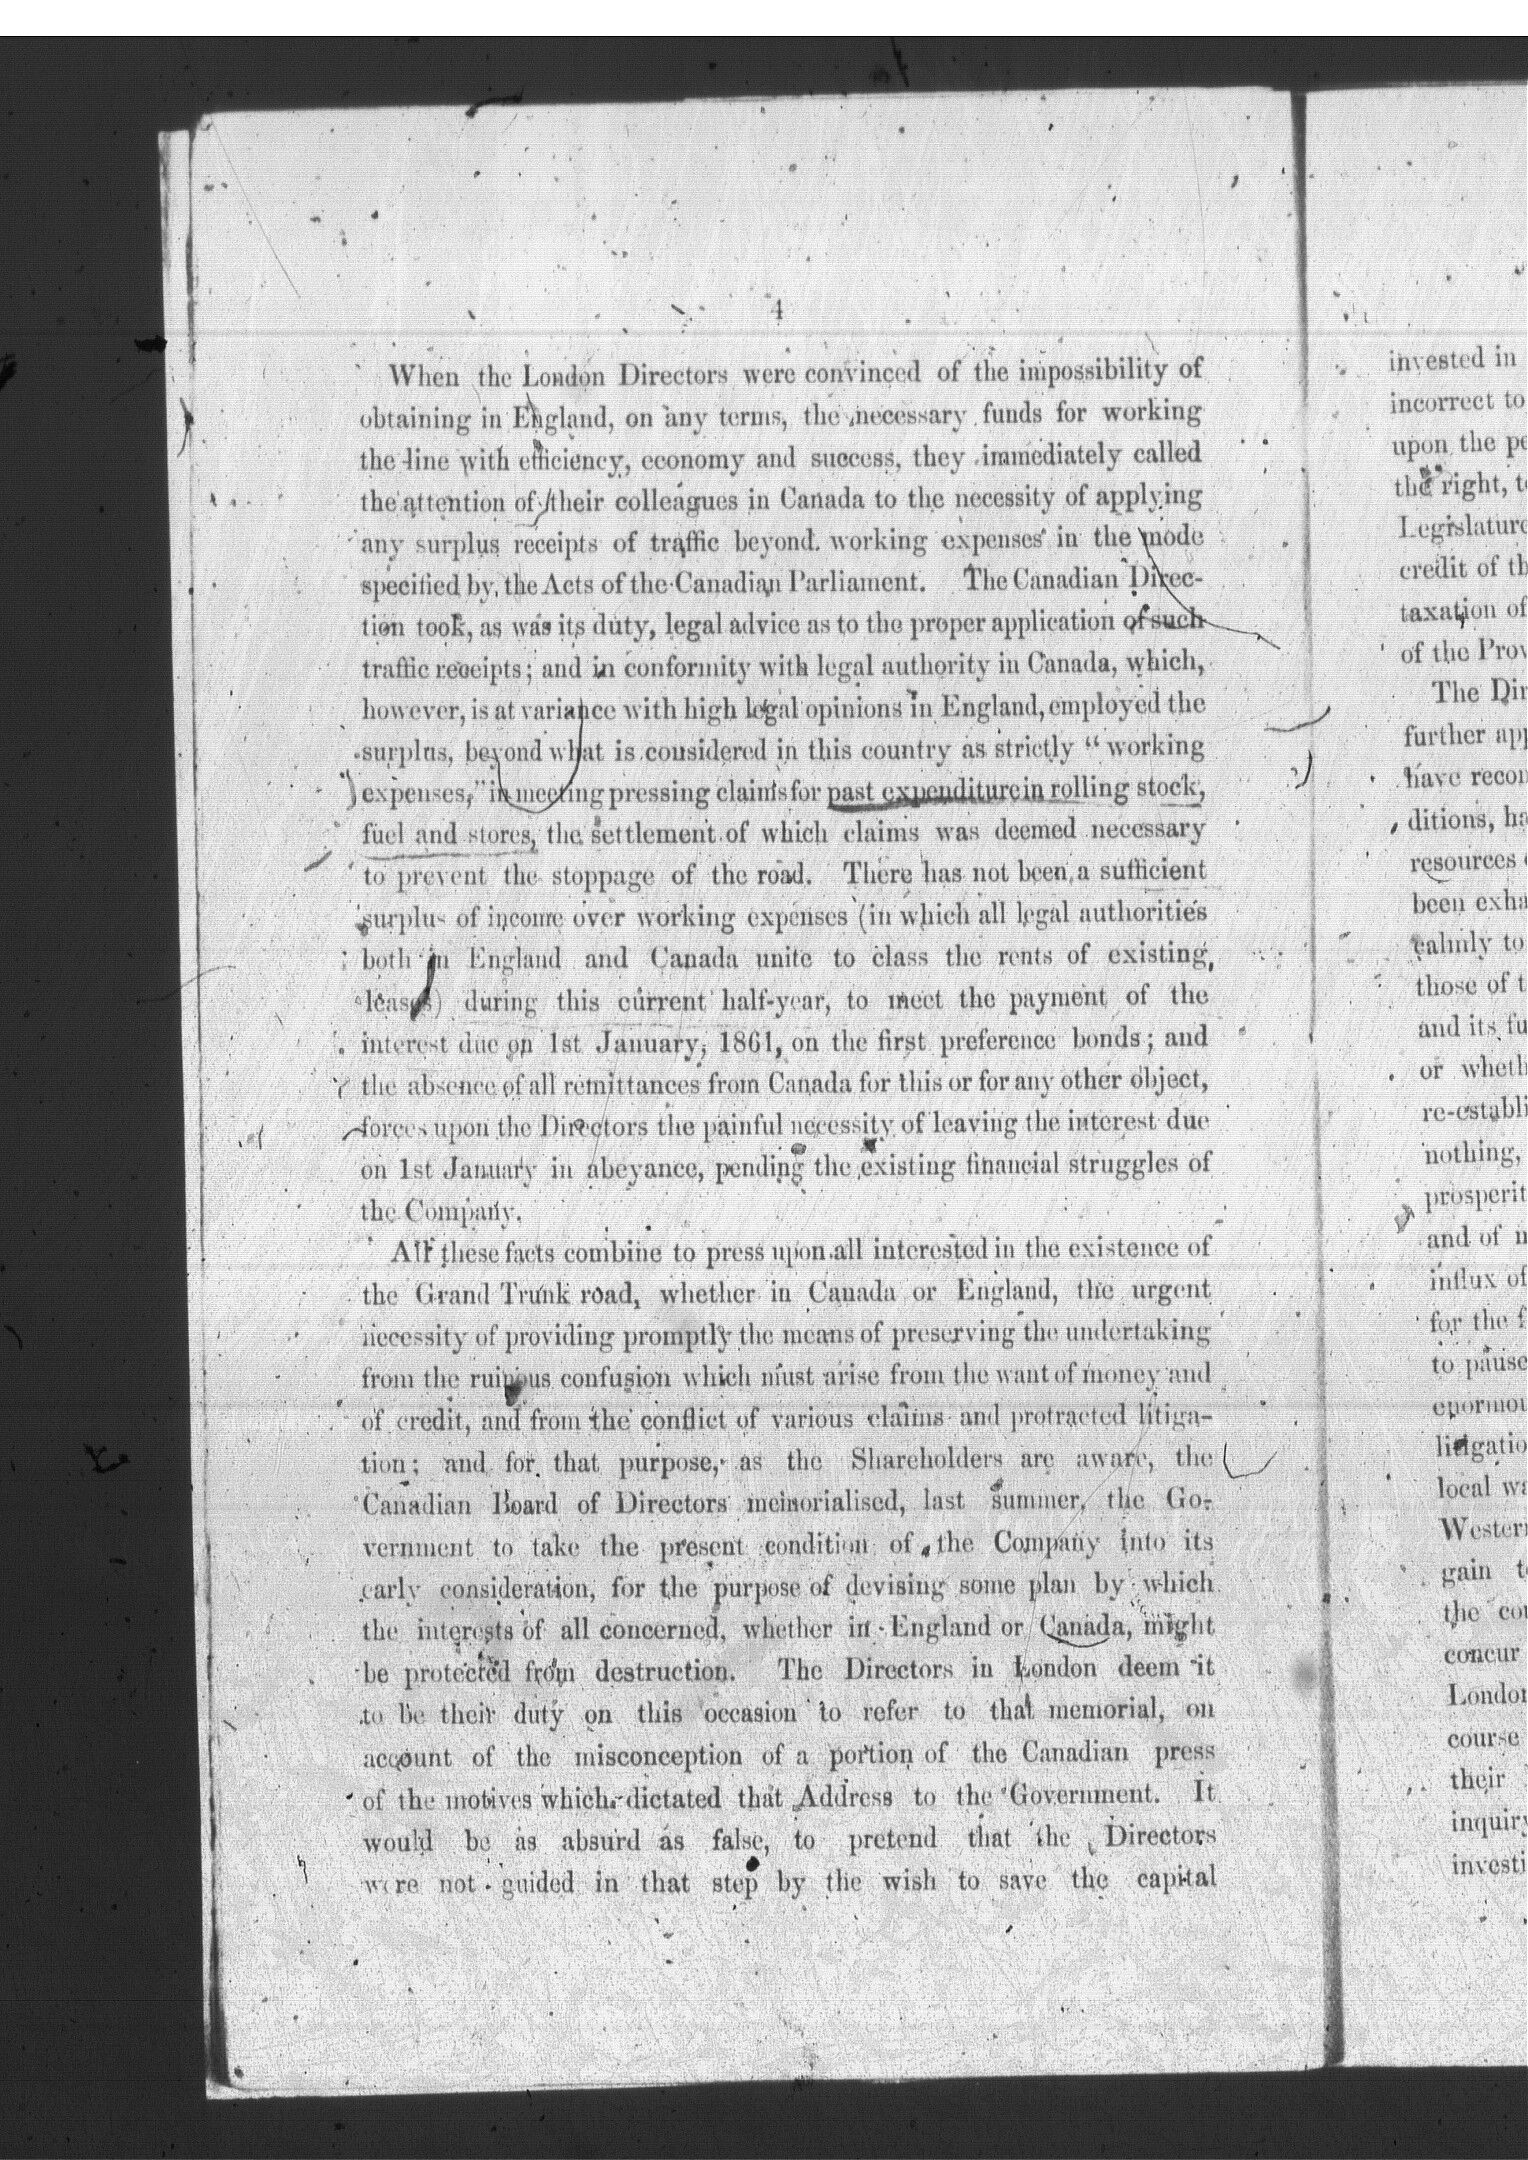 4
When the London Directors were convinced of the impossibility of
obtaining in England, on any terms, the necessary funds for working
the line with efficiency, economy and success, they immediately called
the attention of their colleagues in Canada to the necessity of applying
any surplus receipts of traffic beyond working expenses in the mode
specified by the Acts of the Canadian Parliament. The Canadian Direc-
tion took, as was its duty, legal advice as to the proper application of such
traffic receipts; and in conformity with legal authority in Canada, which,
however, is at variance with high legal opinions in England, employed the
surplus, beyond what is considered in this country as strictly "working
expenses," in meeting pressing claims for past expenditure in rolling stock,
fuel and stores, the settlement of which claims was deemed necessary
to prevent the stoppage of the road. There has not been a sufficient
surplus of income over working expenses (in which all legal authorities
both in England and Canada unite to class the rents of existing
leases) during this current half-year, to meet the payment of the
interest due on 1st January, 1861, on the first preference bonds; and
the absence of all remittances from Canada for this or for any other object,
forces upon the Directors the painful necessity of leaving the interest due
on 1st January in abeyance, pending the existing financial struggles of
the Company.
All these facts combine to press upon all interested in the existence of
the Grand Trunk road, whether in Canada or England, the urgent
necessity of providing promptly the means of preserving the undertaking
from the ruinous confusion which must arise from the want of money and
of credit, and from the conflict of various claims and protracted litiga-
tion; and for that purpose, as the Shareholders are aware, the
Canadian Board of Directors memorialised, last summer, the Go-
vernment to take the present condition of the Company into its
early consideration, for the purpose of devising some plan by which
the interests of all concerned, whether in England or Canada, might
be protected from destruction. The Directors in London deem it
to be their duty on this occasion to refer to that memorial, on
account of the misconception of a portion of the Canadian press
of the motives which dictated that Address to the Government. It
would be as absurd as false, to pretend that the Directors
were not guided in that step by the wish to save the capital
invested in
incorrect to
upon the
the right,
Legislature
credit of
taxation of
of the
The
further
have
ditions,
resources
been
calmly to
those of
and its
or
nothing,
and of
influx of
for the
to pause
local
Western
gain
the
concur
London
course
their
inquiry